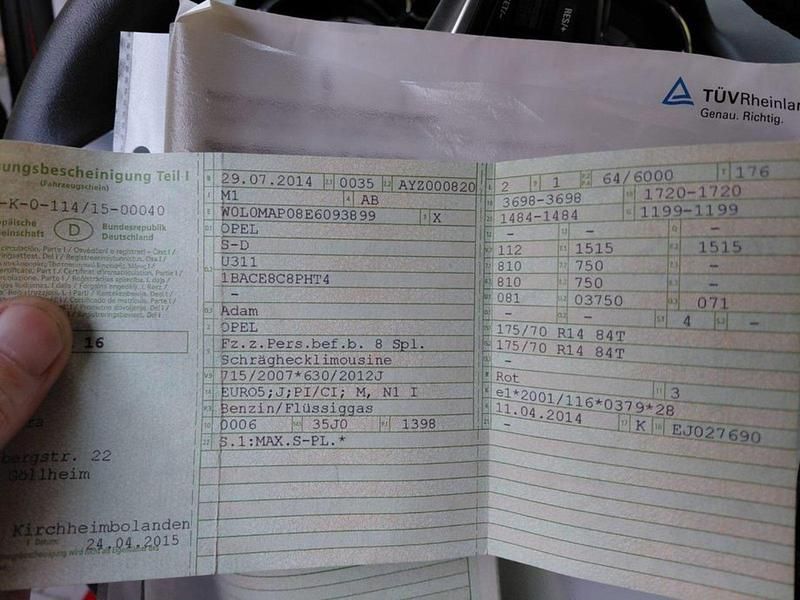 RES/+
TÜVRheinlan
Genau. Richtig.
ungsbescheinigung Teil I
(Fahrzeugschein)
-K-0-114/15-00040
päische
einschaft
D
Bundesrepublik
Deutschland
16
ra
bergstr. 22
Göllheim
Kirchheimbolanden
24.04.2015
29.07.2014 0035 AYZ000820
M1 4 AB
W0L0MAP08E6093899 3 X
OPEL
S-D
U311
1BACE8C8PHT4
-
Adam
OPEL
Fz.z.Pers.bef.b. 8 Spl.
Schräghecklimousine
715/2007*630/2012J
EURO5;J;PI/CI; M, N1 I
Benzin/Flüssiggas
0006 35J0 1398
S.1:MAX.S-PL.*
2 9 1 64/6000 T 176
3698-3698 1720-1720
1484-1484 1199-1199
- - -
112 1515 1515
810 750 -
810 750 -
081 03750 071
- - 4 -
175/70 R14 84T
175/70 R14 84T
-
Rot 3
e1*2001/116*0379*28
11.04.2014 K EJ027690
-